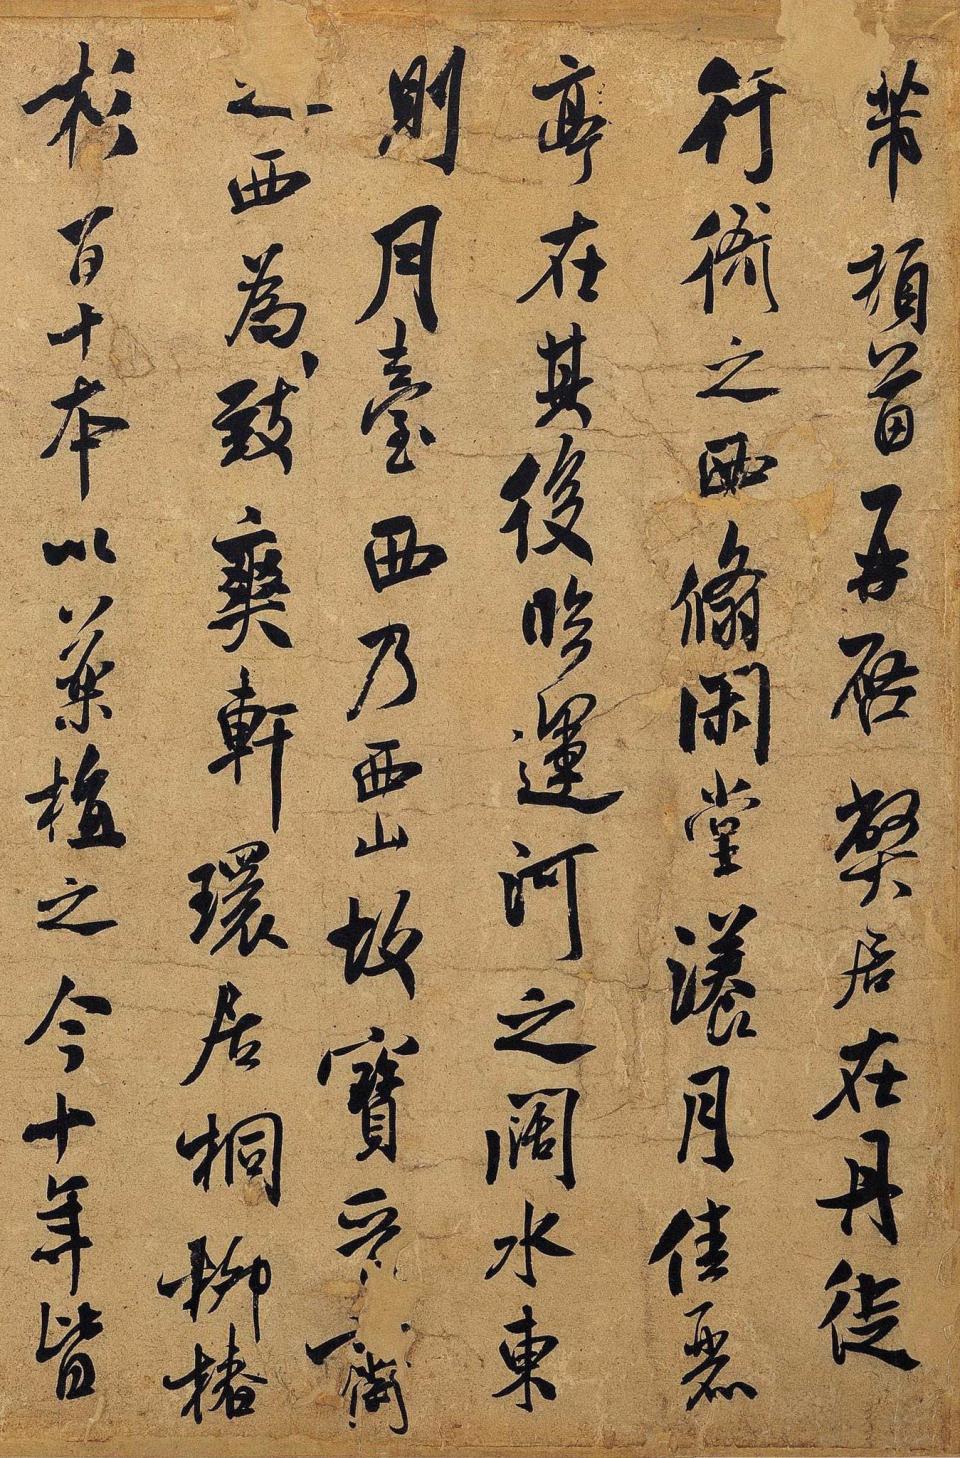 芾頓首再啓弊居在丹徒
行衙之西翛閑堂漾月佳麗
亭在其後臨運河之闊水東
則月臺西乃西山故寶
之西為致爽軒環居桐柳椿
杉百十本以藥植之今十年皆